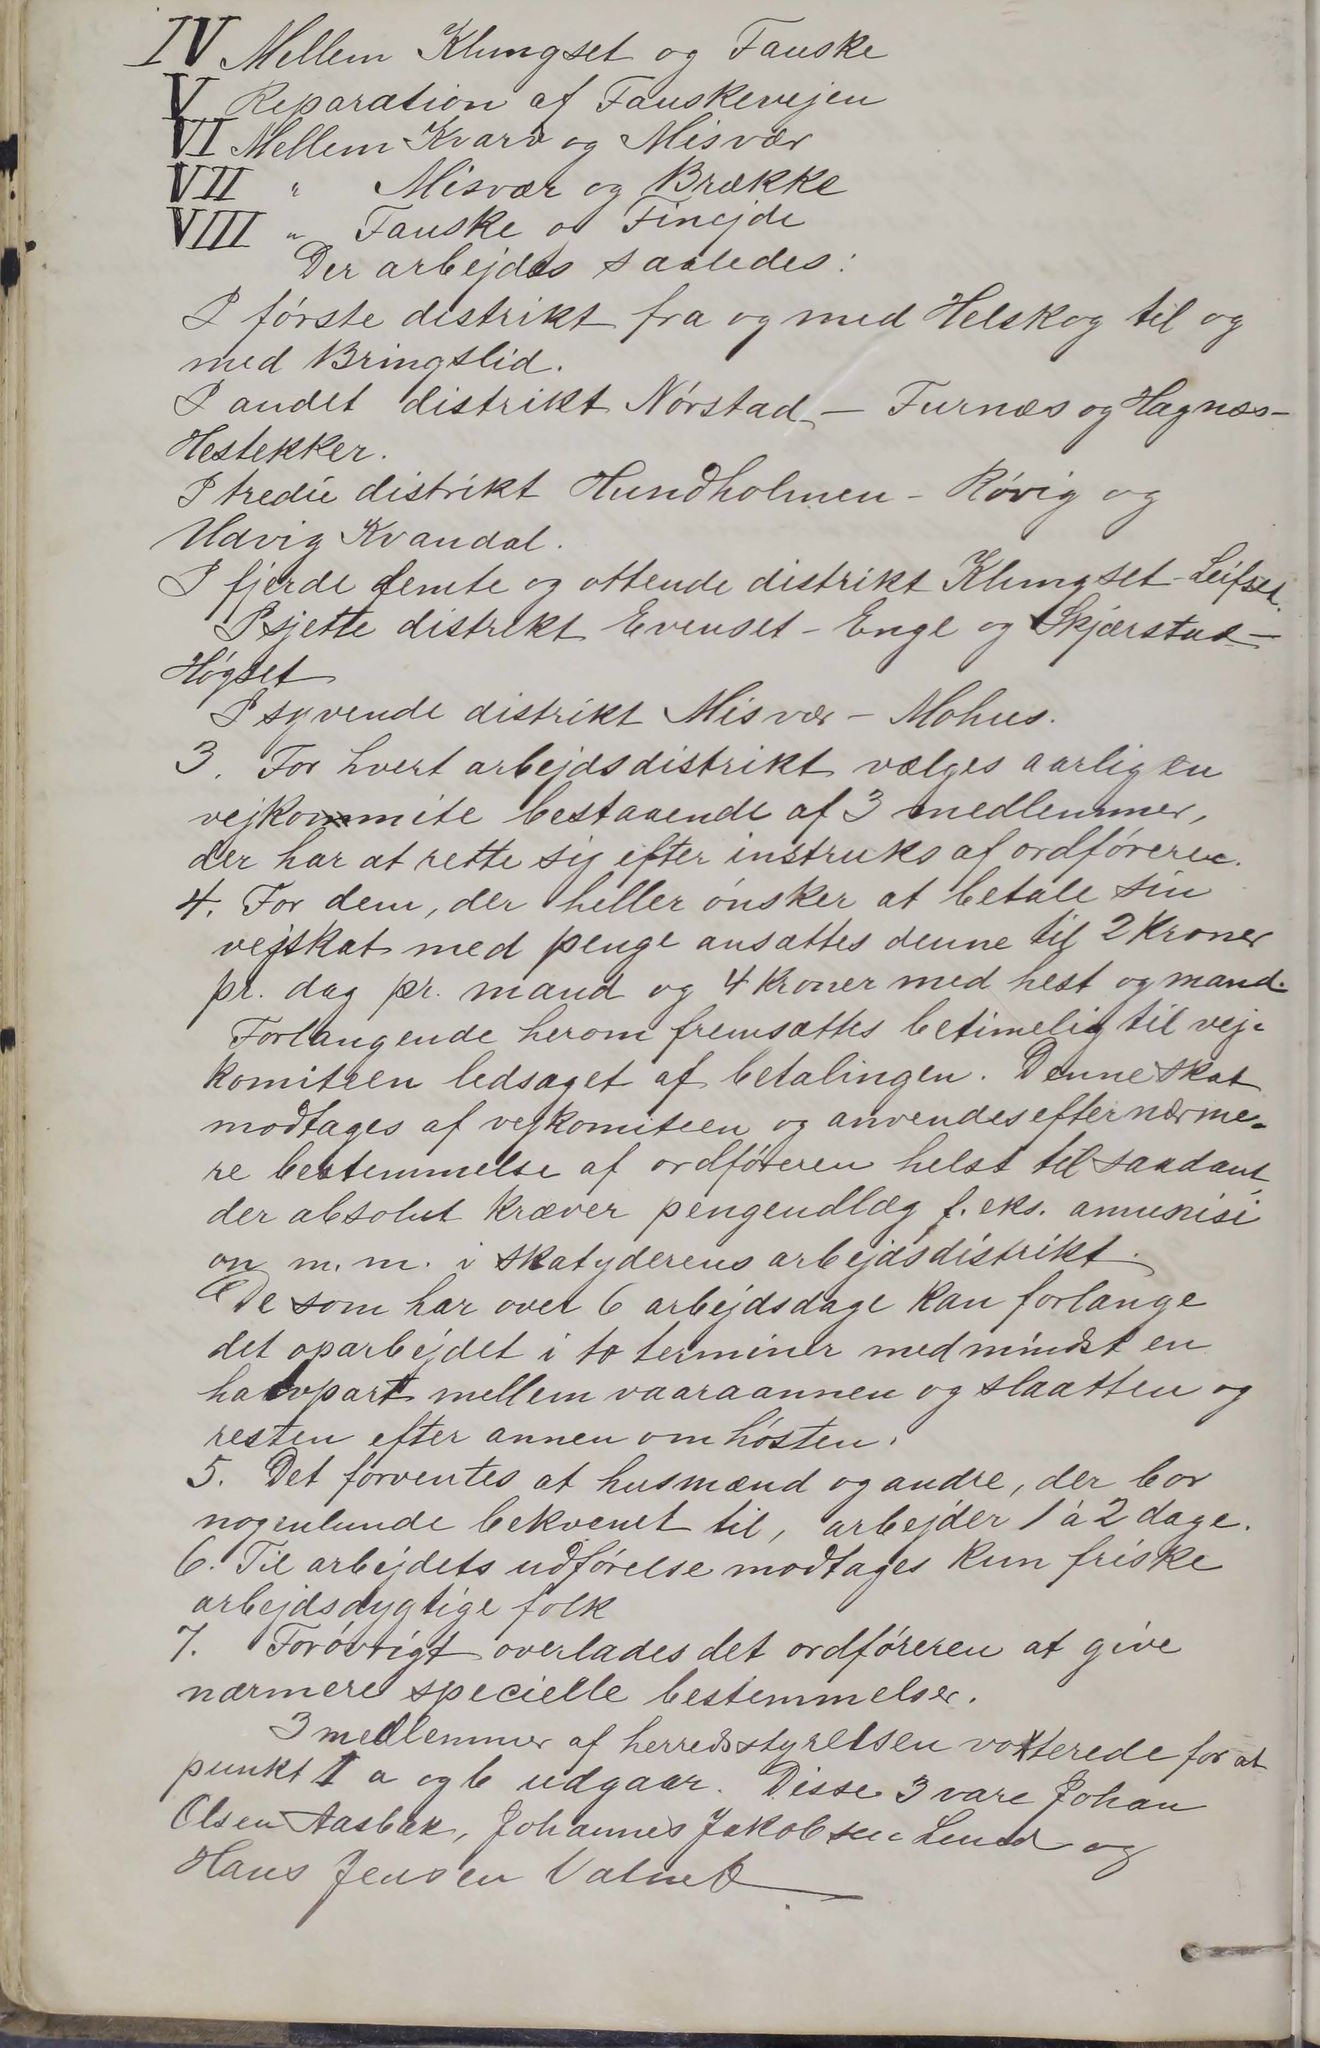 IV Mellem Klungset og Fauske
V Reparation af Fauskevejen
VI Mellem Kvarv og Misvær
VII " Misvær og Brække
VIII " Fauske o Finejde
Der arbejdes saaledes:
I første distrikt fra og med Helskog til og
med Bringslid.
I andet distrikt Nørstad – Furnæs og Hagnæs–
Hestekker.
I tredie distrikt Hundholmen – Røvig og
Udvig Kvandal.
I fjerde femte og ottende distrikt Klungset – Leifset.
I sjette distrikt Evenset – Enge og Skjærstad –
Høgset
I syvende distrikt Misvær – Mohus.
3. For hvert arbejdsdistrikt vælges aarlig en
vejkommite bestaaende af 3 medlemmer,
der har at rette sig efter instruks af ordføreren.
4. For dem, der heller ønsker at betale sin
vejskat med penge ansættes denne til 2 kroner
pr. dag pr. mand og 4 kroner med hest og mand.
Forlangende herom fremsættes betimelig til vej-
komiteen ledsaget af betalingen. Denne skat
modtages af vejkomiteen og anvendes efter nærme-
re bestemmelse af ordføreren helst til saadant,
der absolut kræver pengeudlæg f. eks. amunisi
on m. m. i skatyderens arbejdsdistrikt.
De som har over 6 arbejdsdage kan forlange
det oparbejdet i to terminer med mindst en
halvpart mellem vaaraannen og slaatten og
resten efter annen om høsten.
5. Det forventes at husmænd og andre, der bor
nogenlunde bekvemt til, arbejder 1 à 2 dage.
6. Til arbejdets udførelse modtages kun friske
arbejdsdygtige folk
7. Forøvrigt overlades det ordføreren at give
nærmere specielle bestemmelser.
3 medlemmer af herredsstyrelsen votterede for at
punkt 1 a og b udgaar. Disse 3 vare Johan
Olsen Aasbak, Johannes Jakobsen Lund og
Hans Jensen Valnes